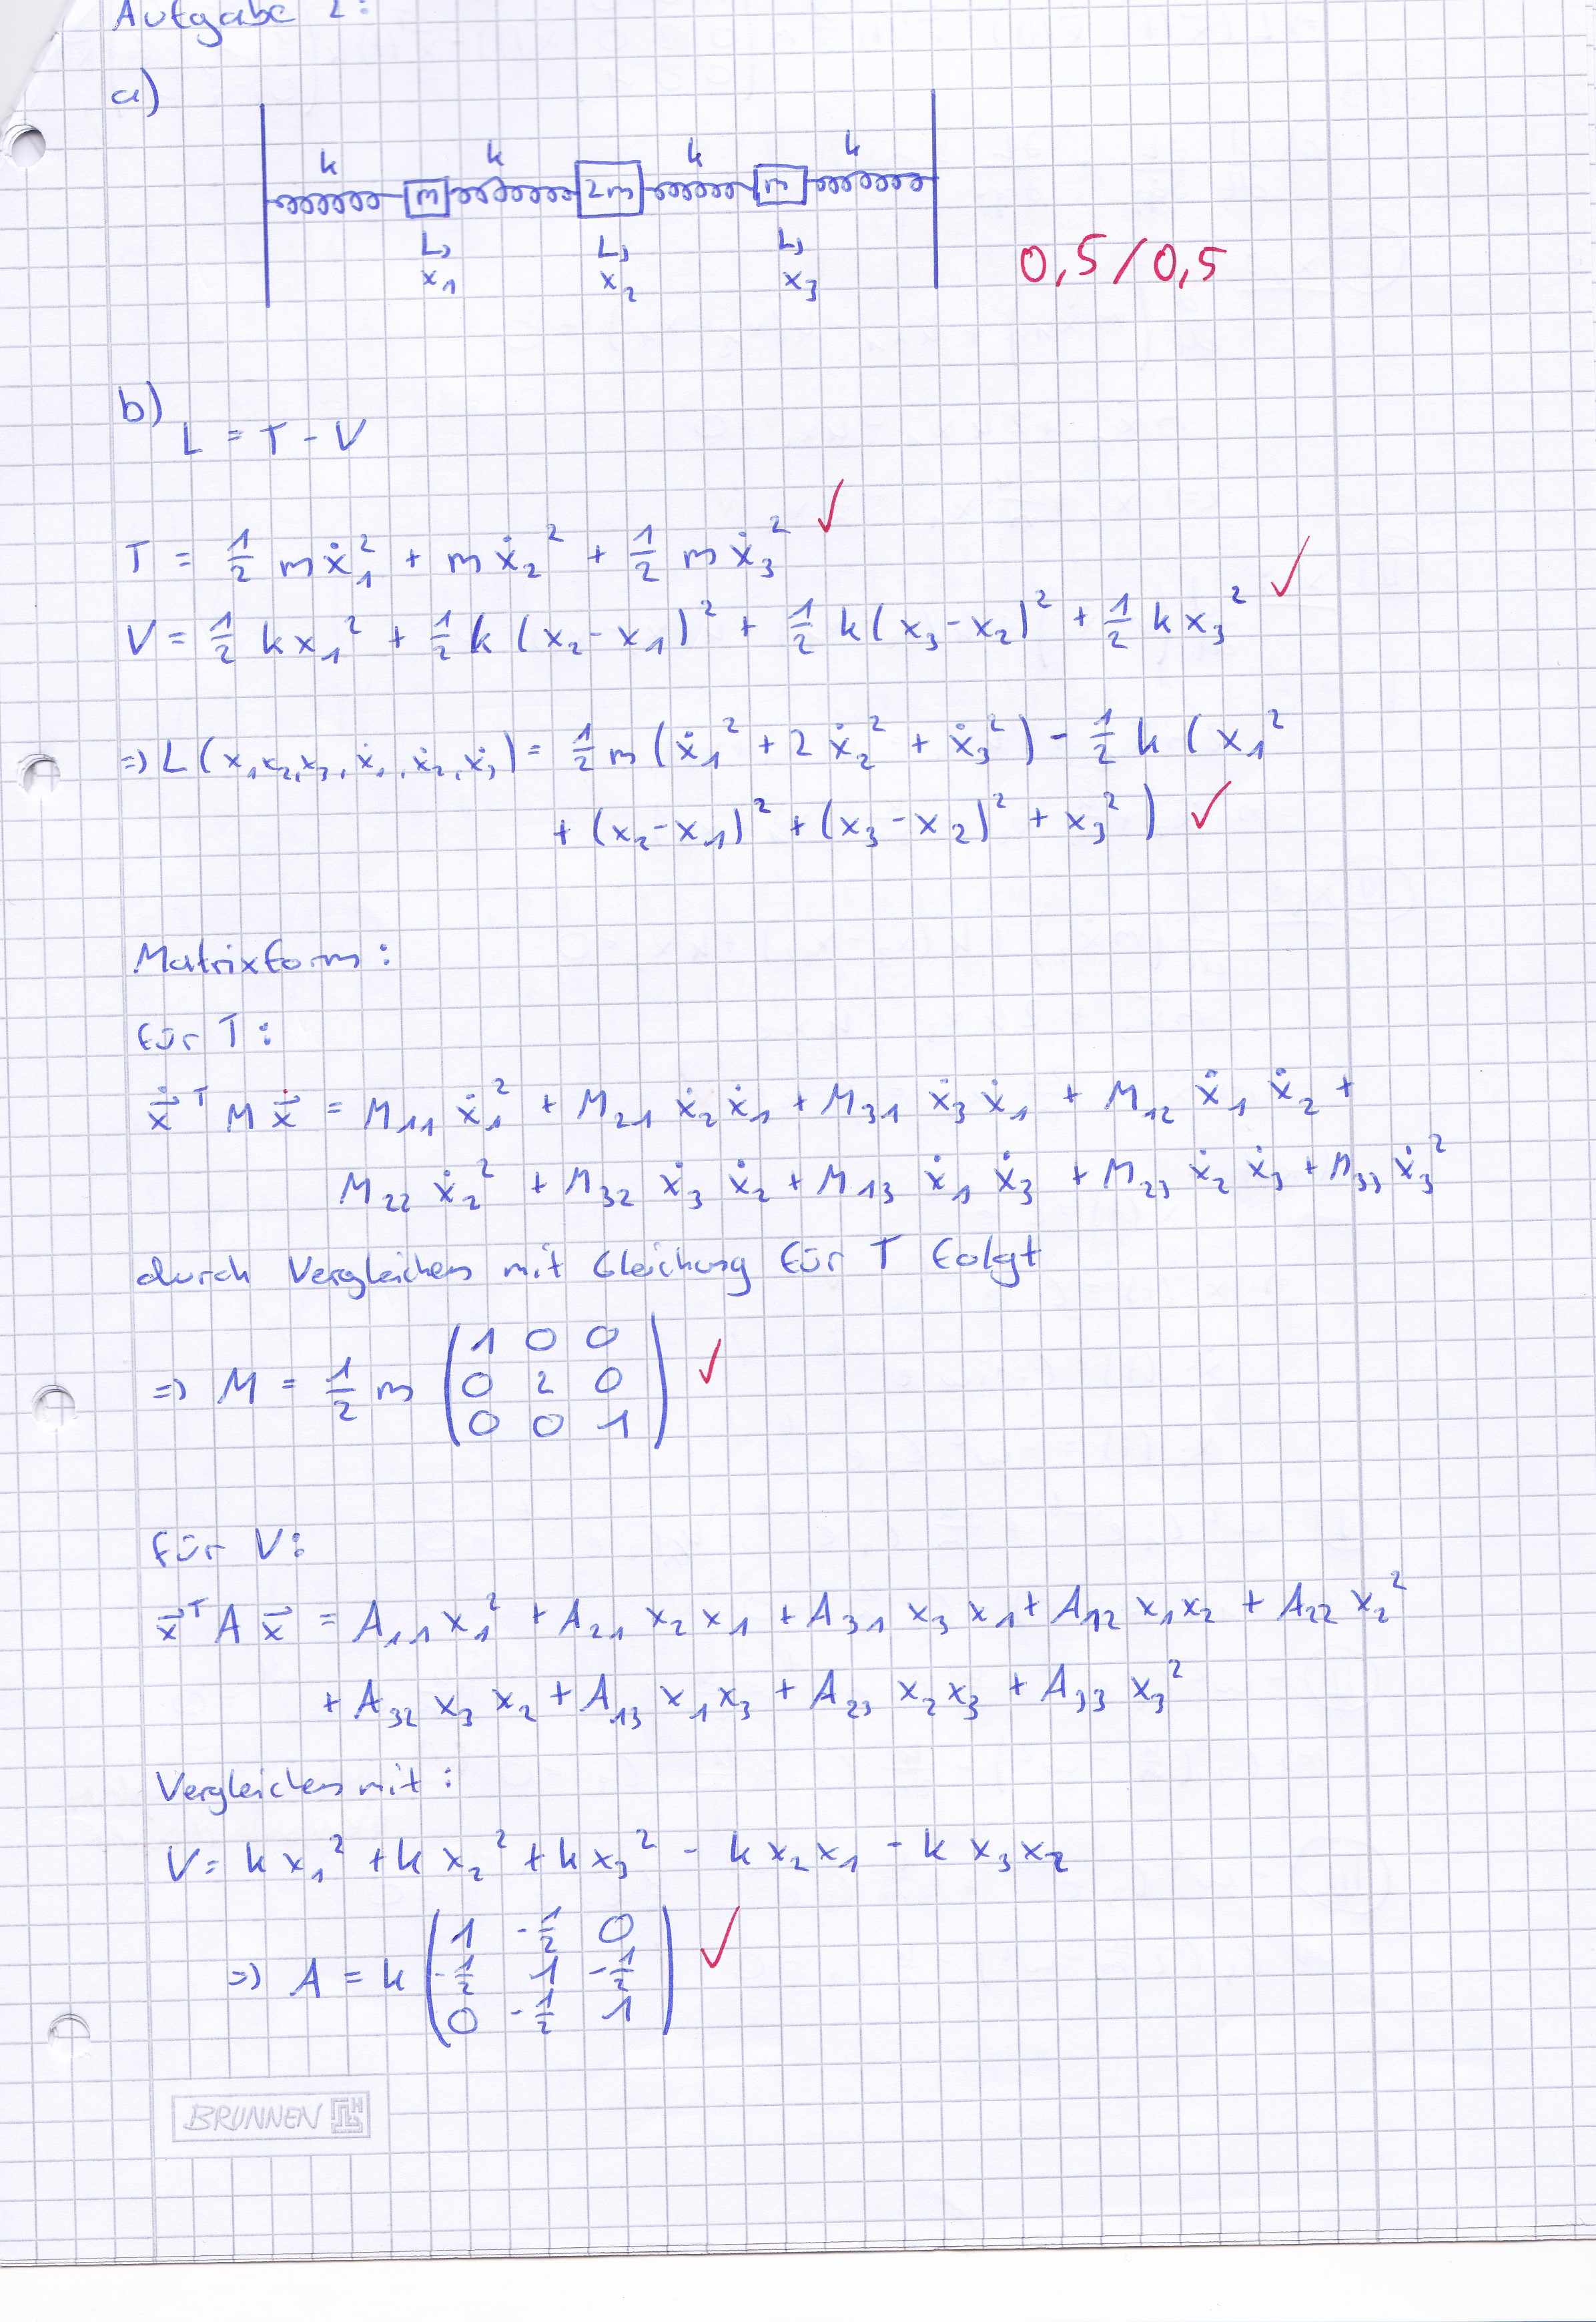 Aufgabe 2:
a)
k k k k
m 2m m
x₁ x₂ x₃
0,5/0,5
b)
L = T - V
T = 1/2 m ẋ₁² + m ẋ₂² + 1/2 m ẋ₃² ✓
V = 1/2 k x₁² + 1/2 k (x₂ - x₁)² + 1/2 k (x₃ - x₂)² + 1/2 k x₃² ✓
=> L (x₁, x₂, x₃, ẋ₁, ẋ₂, ẋ₃) = 1/2 m (ẋ₁² + 2 ẋ₂² + ẋ₃²) - 1/2 k (x₁²
+ (x₂ - x₁)² + (x₃ - x₂)² + x₃²) ✓
Matrixform:
für T:
ẋ⃗ᵀ M ẋ⃗ = M₁₁ ẋ₁² + M₂₁ ẋ₂ ẋ₁ + M₃₁ ẋ₃ ẋ₁ + M₁₂ ẋ₁ ẋ₂ +
M₂₂ ẋ₂² + M₃₂ ẋ₃ ẋ₂ + M₁₃ ẋ₁ ẋ₃ + M₂₃ ẋ₂ ẋ₃ + M₃₃ ẋ₃²
durch Vergleichen mit Gleichung für T folgt
1 0 0
=> M = 1/2 m ( 0 2 0 ) ✓
0 0 1
für V:
x⃗ᵀ A x⃗ = A₁₁ x₁² + A₂₁ x₂ x₁ + A₃₁ x₃ x₁ + A₁₂ x₁ x₂ + A₂₂ x₂²
+ A₃₂ x₃ x₂ + A₁₃ x₁ x₃ + A₂₃ x₂ x₃ + A₃₃ x₃²
Vergleichen mit:
V = k x₁² + k x₂² + k x₃² - k x₂ x₁ - k x₃ x₂
1 -1/2 0
=> A = k ( -1/2 1 -1/2 ) ✓
0 -1/2 1
BRUNNEN